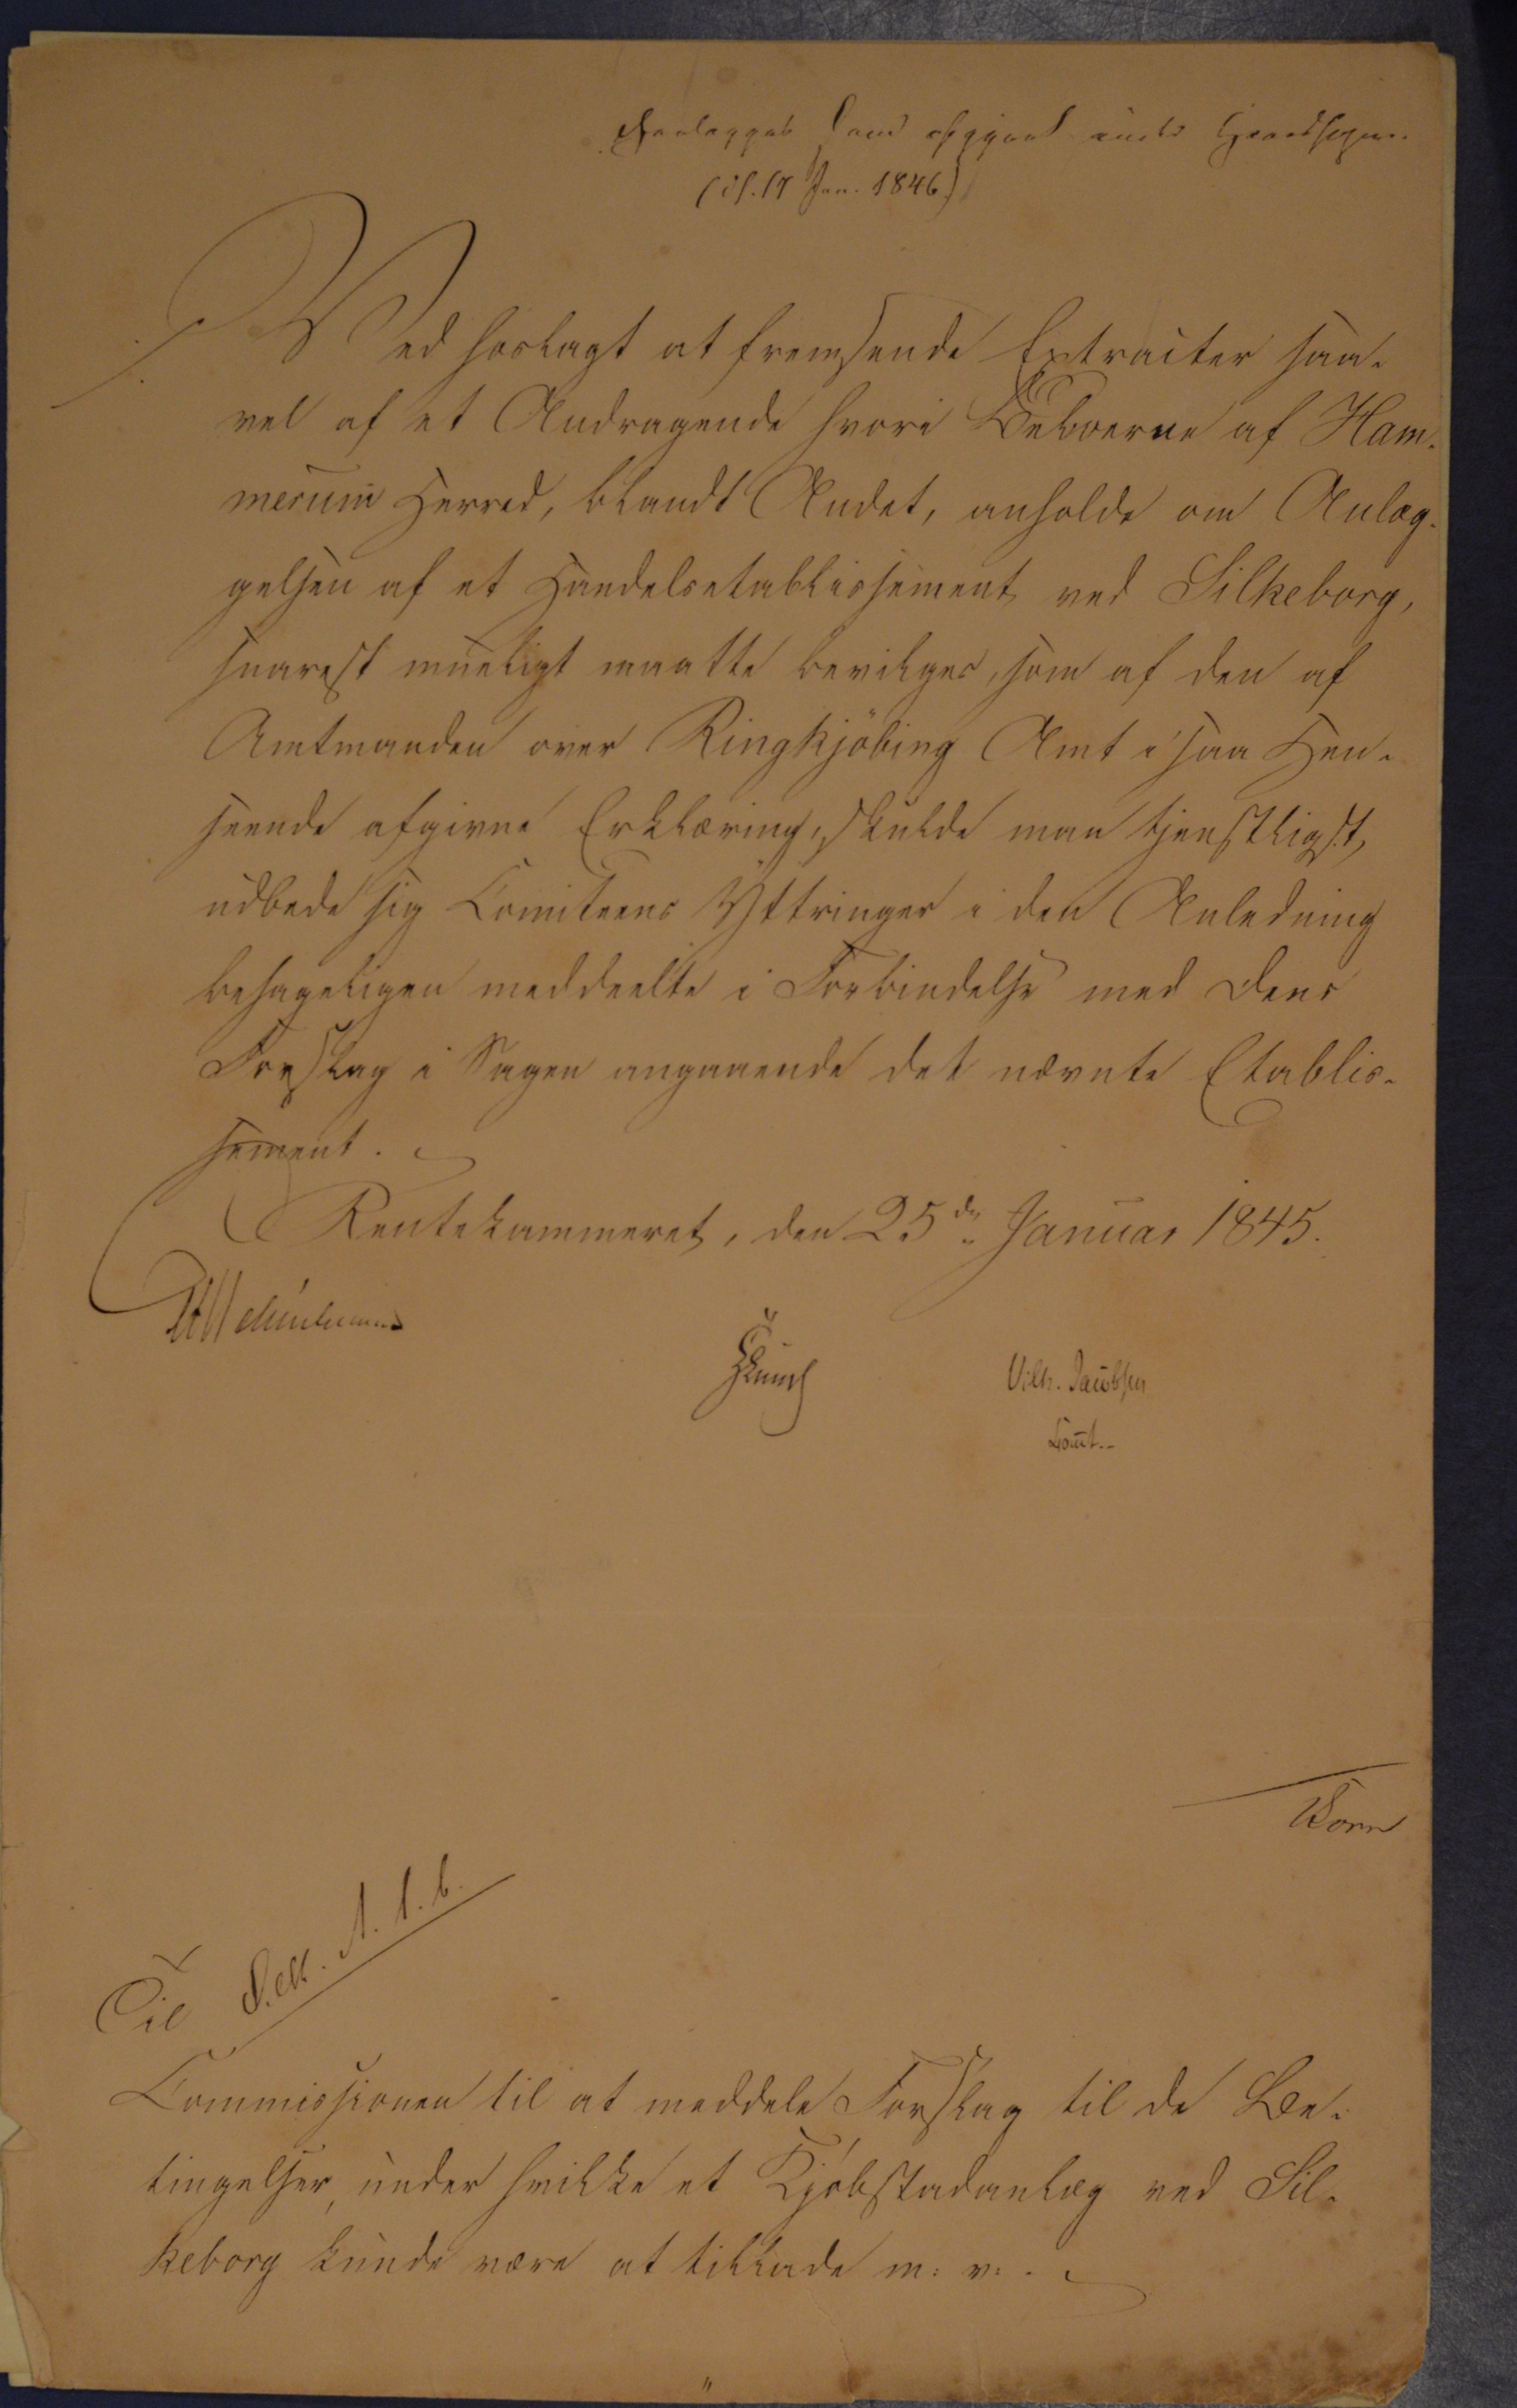 (if. 17 Jan. 1846)
Ved hoslagt at fremsende Extracter saa-
vel af et Andragende hvori Beboerne af Ham-
merum Herred, blandt Andet, anholde om Anlæg-
gelsen af et Handelsetablissement ved Silkeborg,
snarest mueligt maatte bevilges, som af den af
Amtmanden over Ringkjöbing Amt i saa Hen-
seende afgivne Erklæring, skulde man tjenstligst
udbede sig Comiteens Yttringer i den Anledning
behageligen meddeelte i Forbindelse med dens
Forslag i Sagen angaaende det nævnte Etablis-
sement.
Rentekammeret, den 25de Januar 1845.
Vilh. Jacobsen
Const.
Til
Commissionen til at meddele Forslag til de Be-
tingelser, under hvilke et Kjøbstadanlæg ved Sil-
keborg kunde være at tillade m: v:.